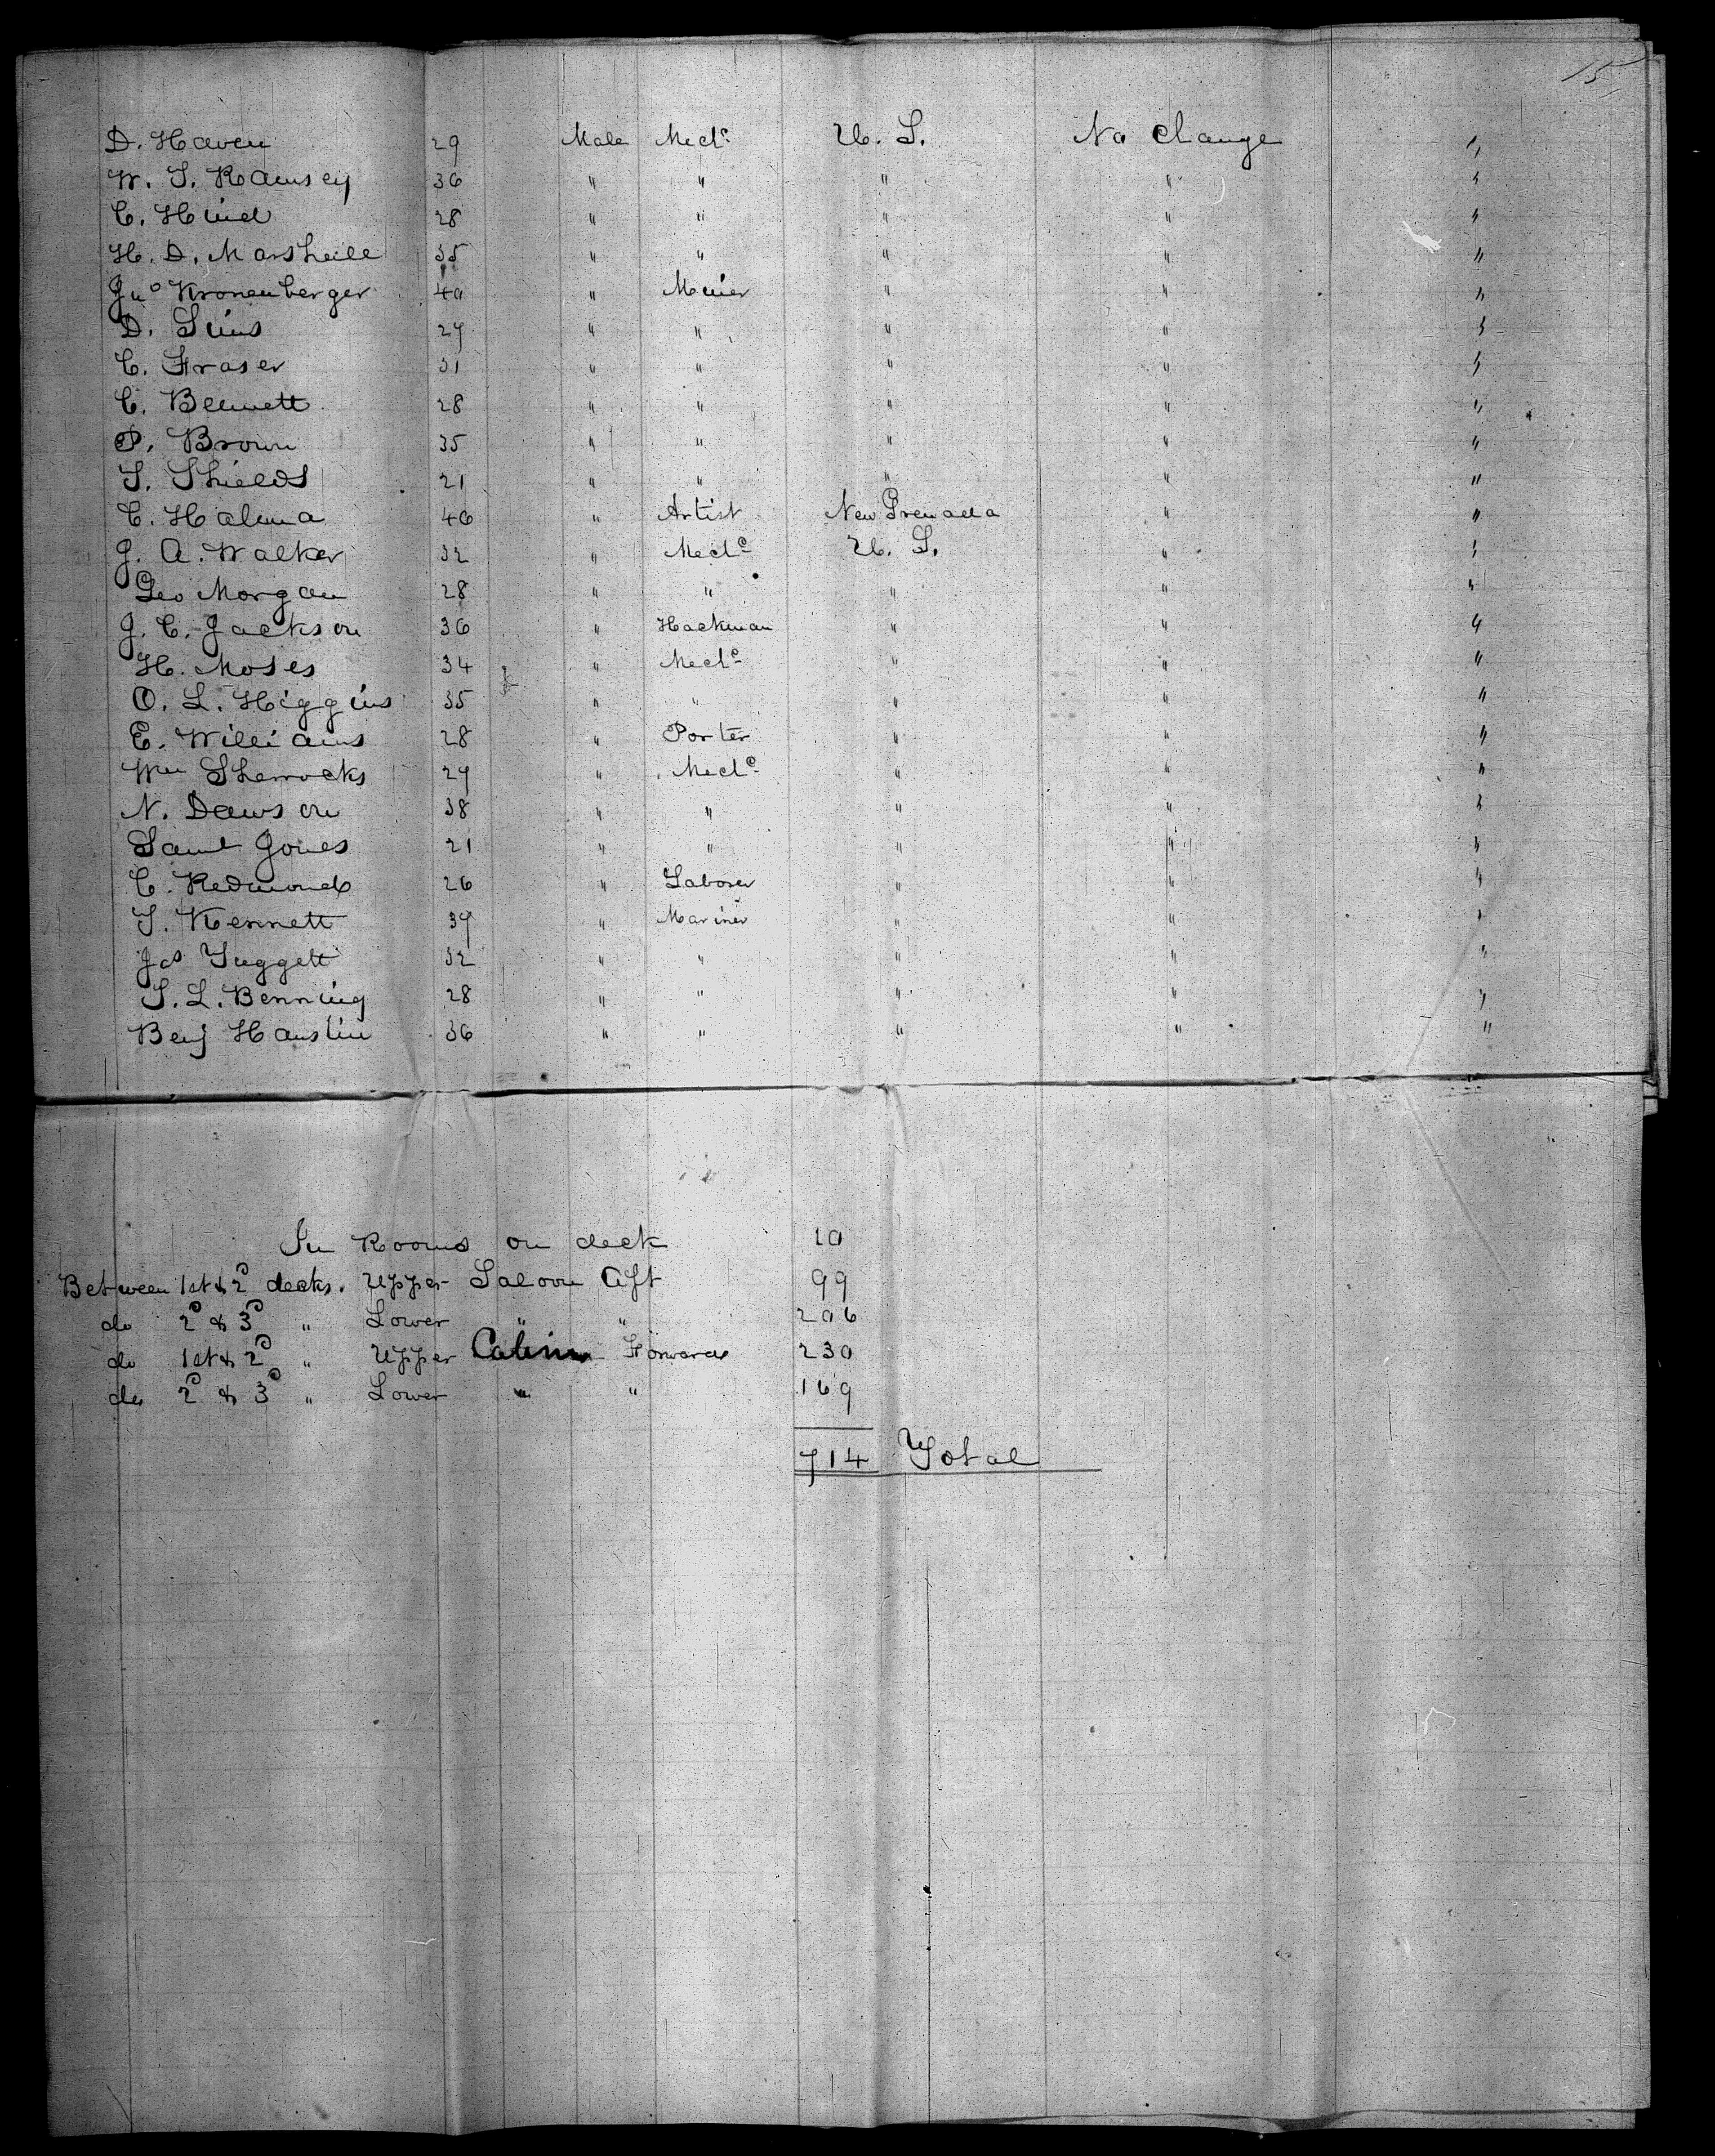 15
D. Haven 29 Male Mech<sup>c</sup> U. S. No Change "
W. S. Ramsey 36 " " " " "
C. Hind 28 " " " " "
H. D. Marshall 35 " " " " "
Jno Kronenberger 40 " Miner " " "
D. Sims 29 " " " " "
C. Fraser 31 " " " " "
C. Bennett 28 " " " " "
P. Brown 35 " " " " "
S. Shields 21 " " " " "
C. Halma 46 " Artist New Grenada " "
J. A. Walker 32 " Mech<sup>c</sup> U. S. " "
Geo Morgan 28 " " " " "
J. C. Jackson 36 " Hackman " " "
H. Moses 34 " Mech<sup>c</sup> " " "
O. L. Higgins 35 " " " " "
E. Williams 28 " Porter " " "
Wm Sherrocks 29 " Mech<sup>c</sup> " " "
N. Dawson 38 " " " " "
Saml Jones 21 " " " " "
C. Redmond 26 " Laborer " " "
S. Kennett 39 " Mariner " " "
Jas Tuggett 32 " " " " "
S. L. Benning 28 " " " " "
Benj Hanslin 36 " " " " "
In Rooms on deck 10
Between 1st & 2d decks. Upper Saloon Aft 99
do 2d & 3d " Lower " " 206
do 1st & 2d " Upper Cabin Forward 230
do 2d & 3d " Lower " " 169
714 Total